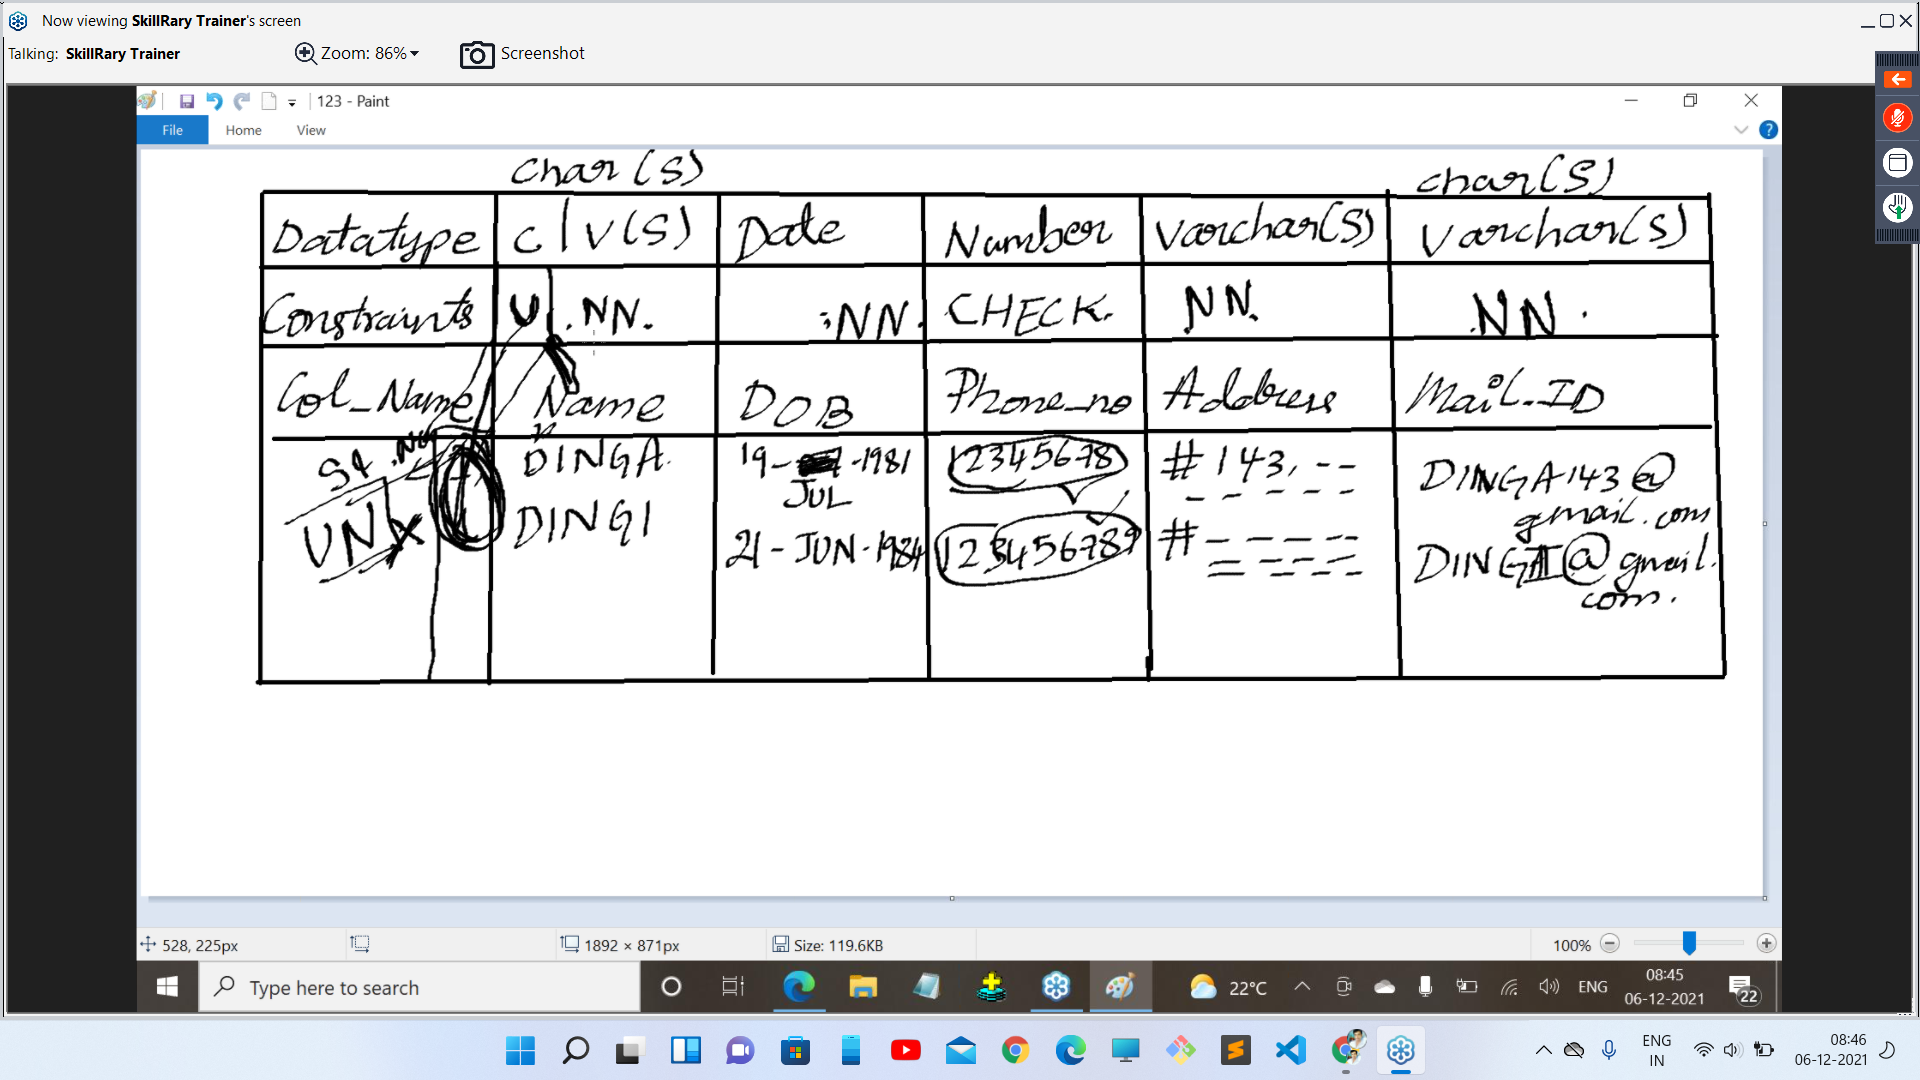 Now viewing SkillRary Trainer's screen
Talking: SkillRary Trainer
Zoom: 86%
Screenshot
123 - Paint
File Home View
Char(S) char(S)
Datatype C/V(S) Date Number Varchar(S) Varchar(S)
Constraints U .NN. :NN. CHECK. NN. .NN.
Col_Name Name DOB Phone_no Address Mail_ID
DINGA. 19- -1981 12345678 #143, -- DINGA143@
JUL gmail.com
DINGI 21-JUN-1984 123456789 # DINGI@gmail.
com.
528, 225px
1892 × 871px
Size: 119.6KB
100%
Type here to search
22°C
ENG
08:45
06-12-2021
22
ENG
IN
08:46
06-12-2021